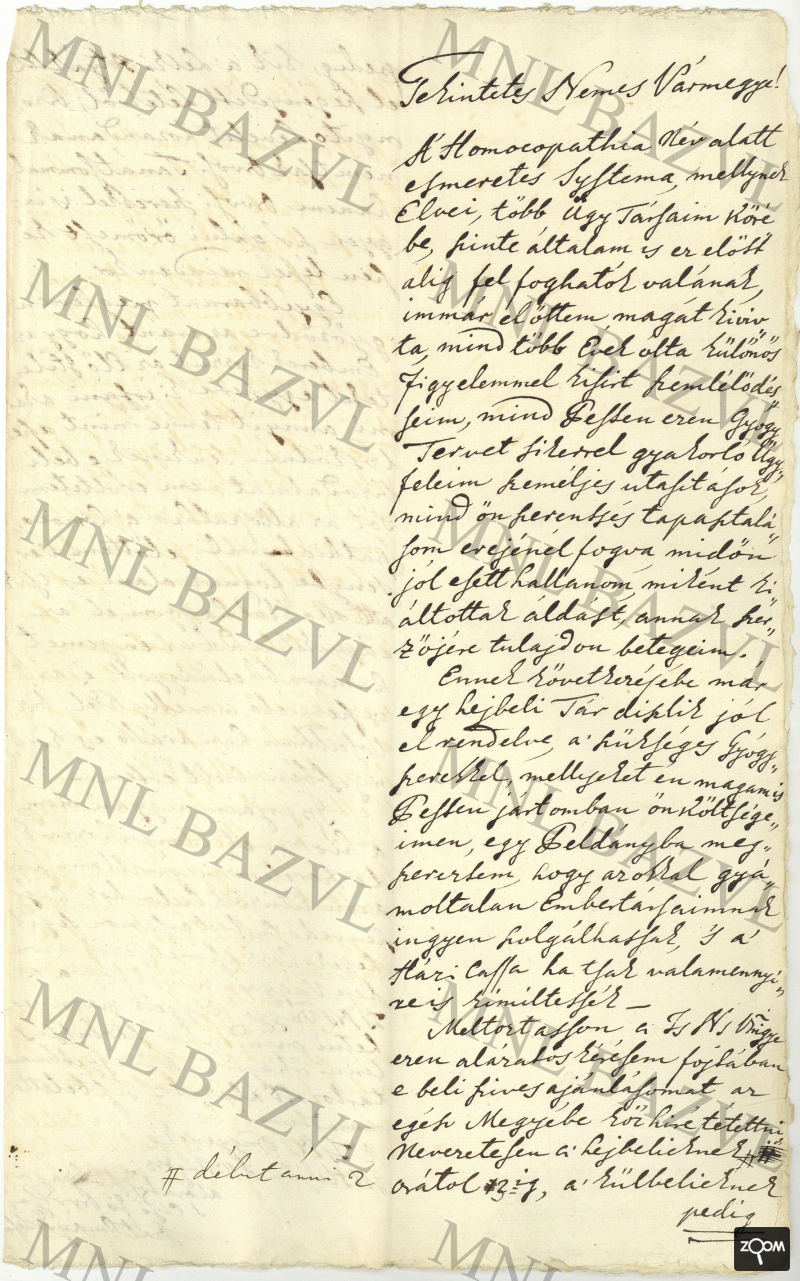 Tekintetes Nemes Vármegye!
A' Homoeopathia Név alatt
esmeretes Systema, mellynek
Elvei, több Ügy Társaim Köré
be, szinte általam is ez előtt
alig fel foghatók valának,
immár előttem magát kiviv
ta, mind több Évek olta külőnős
figyelemmel kisirt szemlélődés
seim, mind Pesten ezen Gyógy
Tervet sikerrel gyakorló Ügy
feleim személjes utasitások,
mind ön szerentsés tapasztalá
som erejénél fogva, midőn
jól esett hallanom, miként ki
áltottak áldást, annak szer„
zőjére tulajdon betegeim.
Ennek következésébe már
egy hejbeli Tár diszlik jól
el rendelve, a' szükséges Gyógy„
szerekkel, mellyeket én magam is
Pesten jártomban ön költsége„
imen, egy Példányba meg„
szereztem, hogy azokkal gyá„
moltalan Embertársaimnak
ingyen szolgálhassak, 's a'
Házi Cassa ha tsak valamennyi„
re is kiméltessék —
Méltóztasson a Ts Ns Vmgye
ezen alázatos kérésem fojtában
e beli szives ajánlásomat az
egész Megyébe közhíré tétettni
Nevezetesen a' hejbelieknek
délutánni 2
orától 3ig, a' külbelieknek
pedig
MNL BAZVL
MNL BAZVL
MNL BAZVL
MNL BAZVL
MNL BAZVL
MNL BAZVL
ZOOM